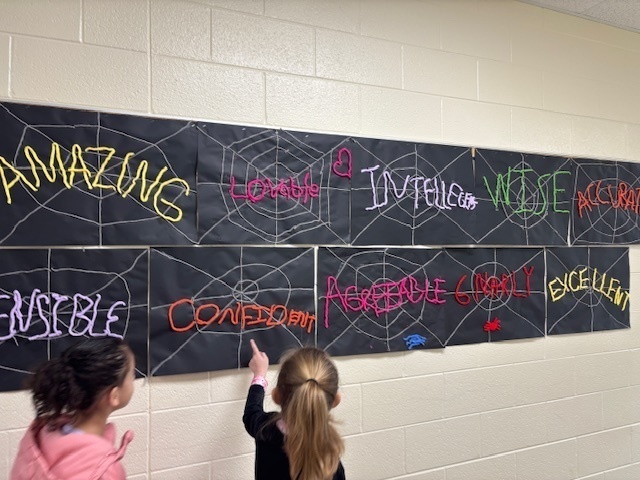 AMAZING LOVABLE INTELLEGENT WISE ACCURAT
ENSIBLE CONFIDENT AGREEABLE GNARLY EXCELLENT